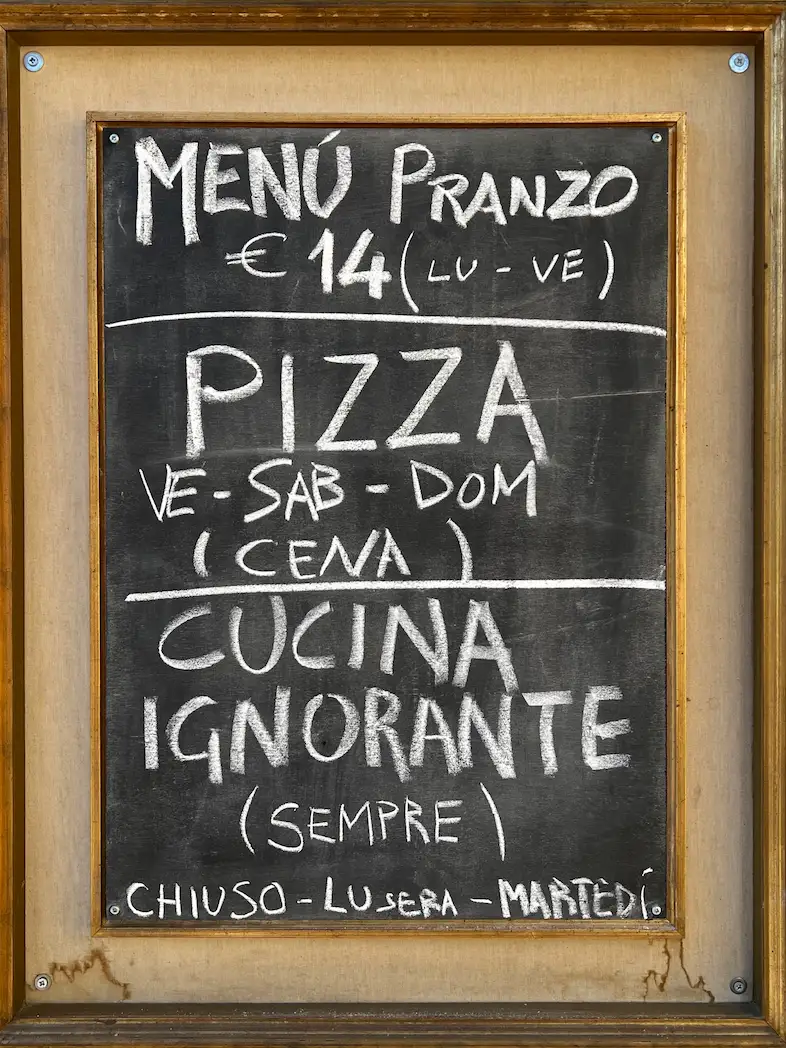 MENÚ PRANZO
€ 14 (LU - VE)
PIZZA
VE - SAB - DOM
(CENA)
CUCINA
IGNORANTE
(SEMPRE)
CHIUSO - LU SERA - MARTEDÍ